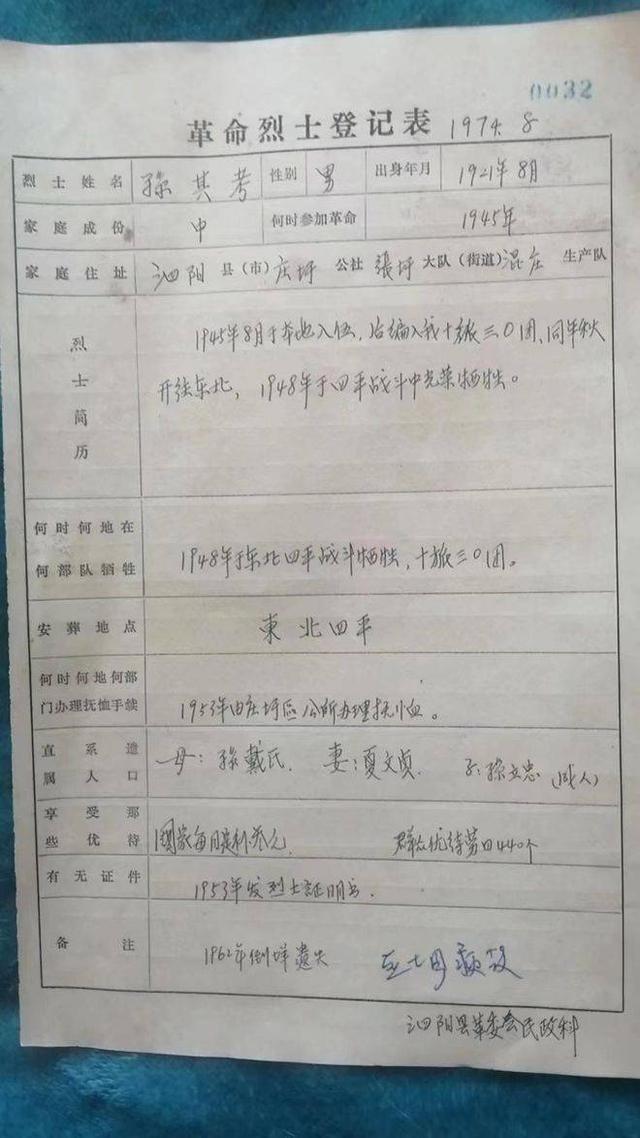 0032
革命烈士登记表 1974.8
烈士姓名 孫其考 性别 男 出身年月 1921年8月
家庭成份 中 何时参加革命 1945年
家庭住址 泗阳县(市)庄圩公社張圩大队(街道)混庄生产队
烈士简历
1945年8月于本地入伍,后编入我十旅三〇团、同年秋
开往东北,1948年于四平战斗中光荣牺牲。
何时何地在何部队牺牲
1948年于东北四平战斗牺牲,十旅三〇团。
安葬地点 東北四平
何时何地何部门办理抚恤手续
1953年由庄圩区公所办理抚恤。
直系遗属人口
母:孫戴氏. 妻:夏文贞. 子:孫立忠(成人)
享受那些优待
国家每月 元. 群众优待劳日440个
有无证件 1953年发烈士証明书.
备注 1962年倒垟遗失
泗阳县革委会民政科